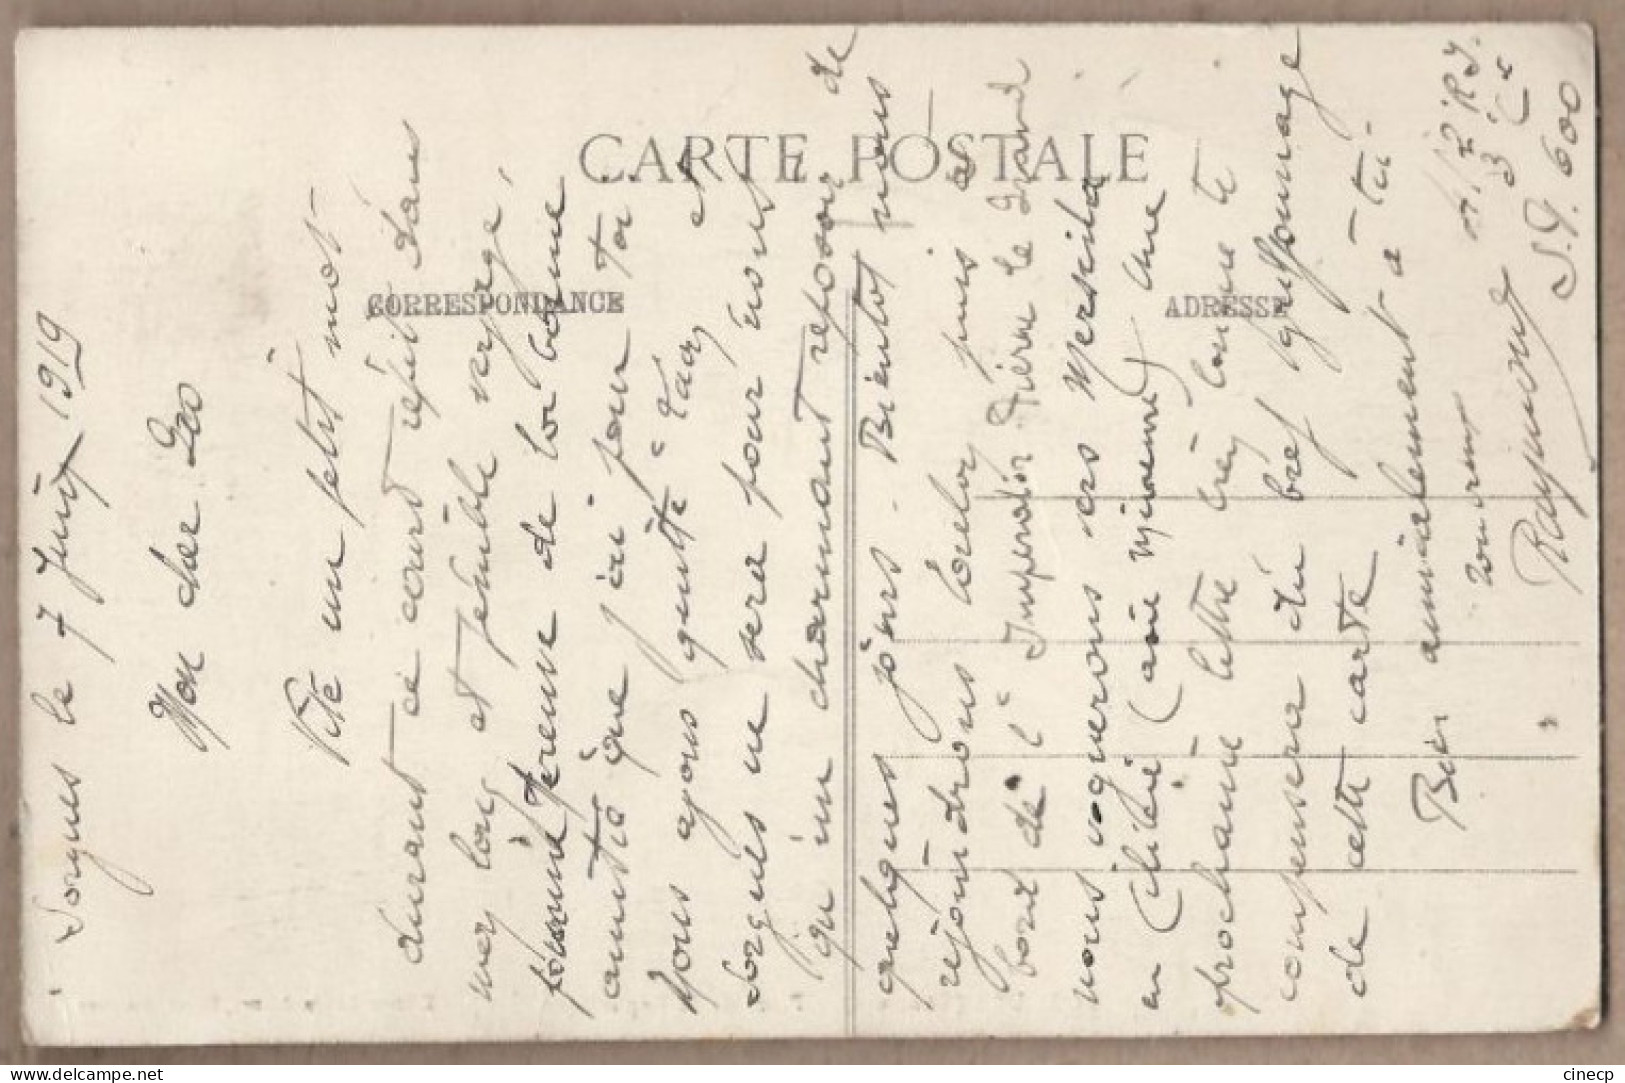 CARTE POSTALE
CORRESPONDANCE
ADRESSE
Sorgues le 7 Juin 1919
Mon cher Géo
Vite un petit mot
durant ce court répit dans
mer long et pénible voyage,
preuve de la bonne
amitié que j'ai pour toi.
Nous avons quitté et
Sorgues ne sera pour nous
qu'un charmant reposoir de
quelques jours. Bientôt nous
rejoindrons Toulon puis à
bord de l'Imperator Pierre le Grand
nous voguerons vers Mersina
en Cilicie (Asie Mineure) Une
prochaine lettre très longue te
compensera du bref griffonnage
de cette carte
Bien amicalement à toi.
Raymond
412 R.I.
3 Cie
S.P. 600
cinecp